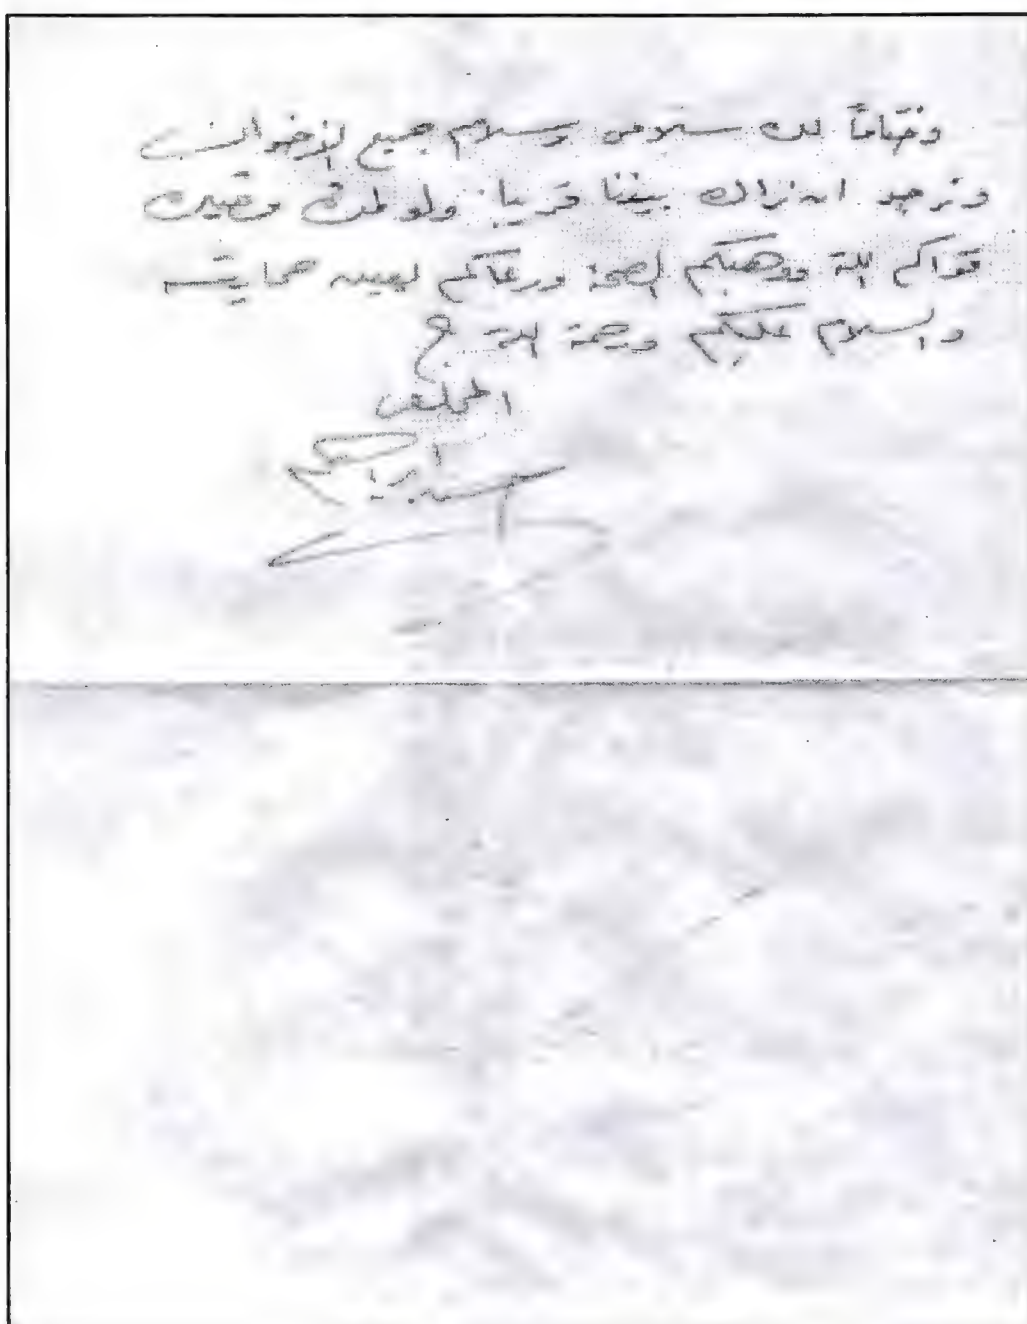 وختاماً لك سلامي وسلام جميع الإخوان
ونرجو ان نراك بيننا قريبا ولو طرت وجيت
قواكم الله ووهبكم الصحة ورعاكم بعين حمايته
والسلام عليكم ورحمة الله
المخلص